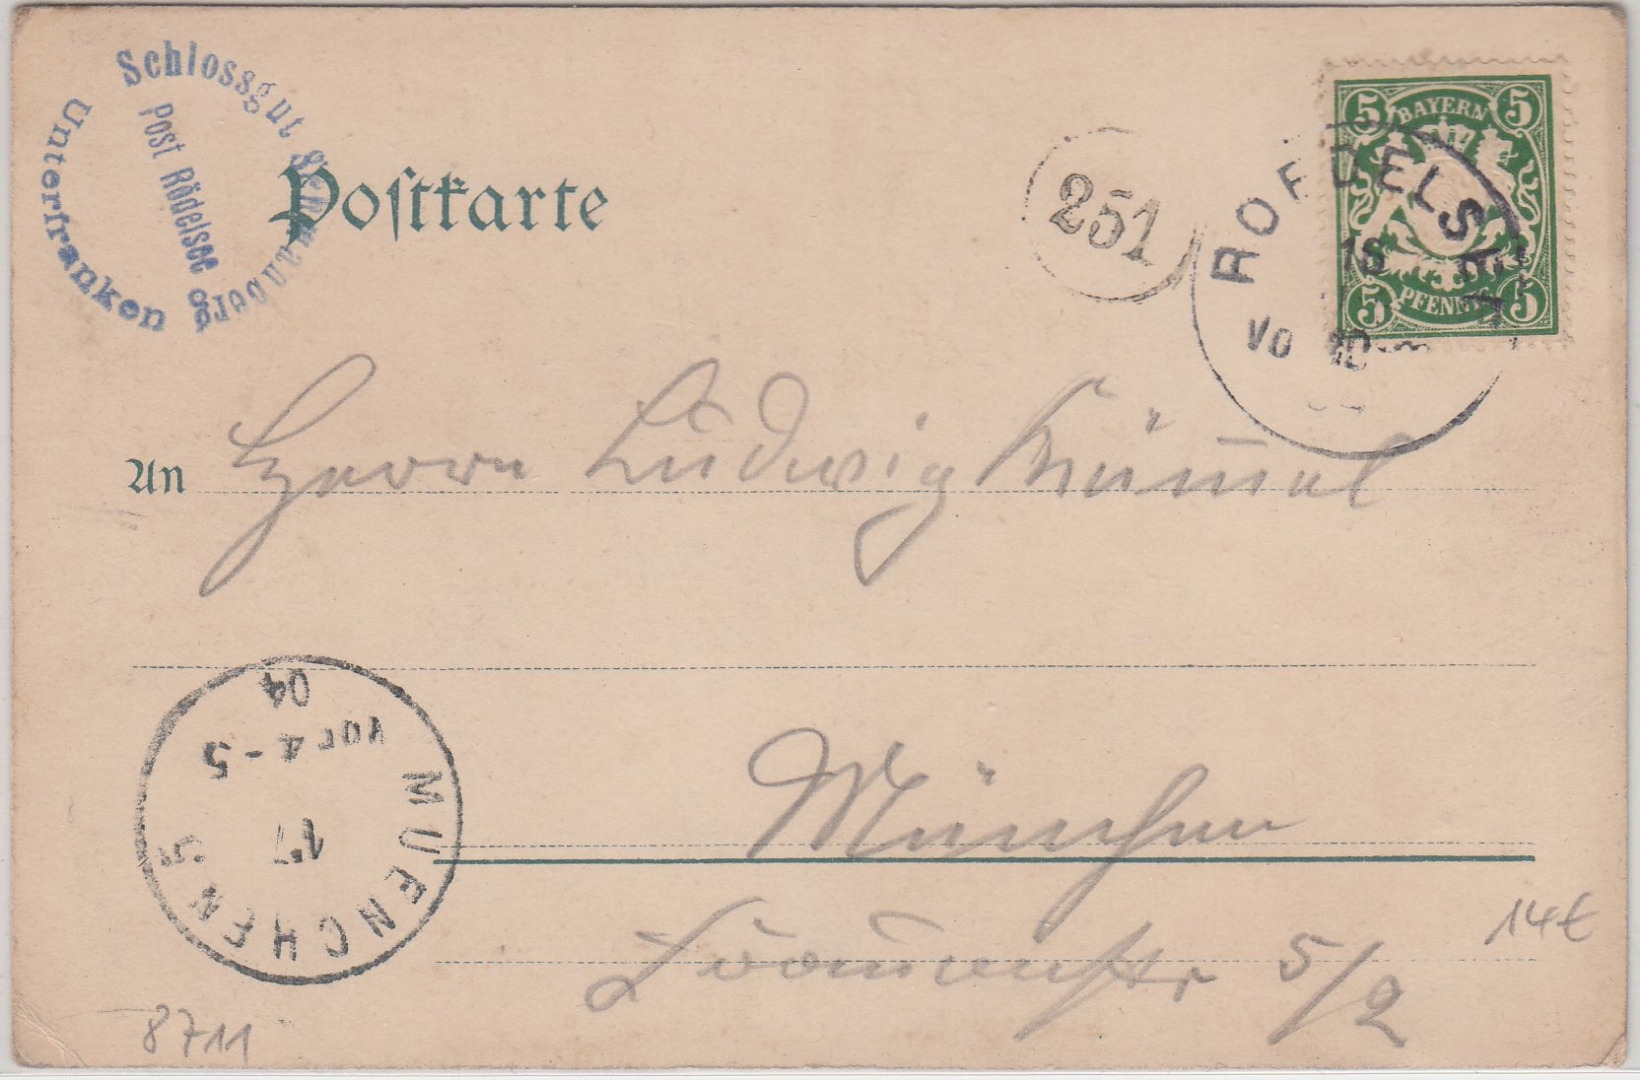 Schlossgut Schwanberg
Post Rödelsee
Unterfranken
Postkarte
251
BAYERN
5 5
PFENNIG
5 5
ROEDELSEE
16
VO 10
An Herrn Ludwig Kümmel
München
5/2
MUENCHEN 5
17
Vor 4-5
04
14€
8711